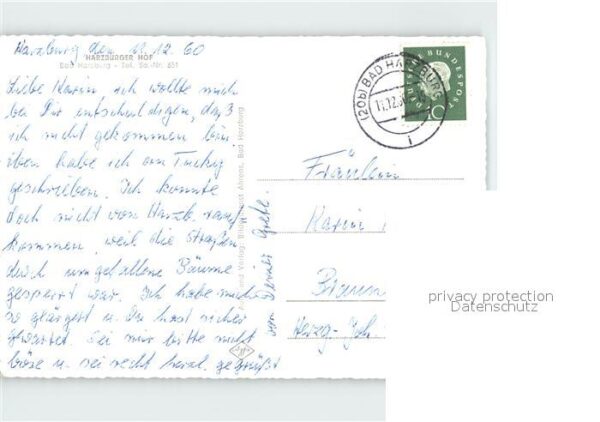 Harzburg den 11.12.60
HARZBURGER HOF
Bad Harzburg - Tel. Sa.-Nr. 651
Liebe Karin, ich wollte mich
bei Dir entschuldigen, daß
ich nicht gekommen bin
üben habe ich an
geschrieben. Ich konnte
doch nicht von Harzb.
kommen, weil die Straßen
durch umgefallene Bäume
gesperrt war. Ich habe mich
so geärgert u. Du hast sicher
gewartet. Sei mir bitte nicht
böse u. sei recht herzl. gegrüßt
von Deiner Grete.
Verlag: Ahrens, Bad Harzburg
DEUTSCHE BUNDESPOST
(20b) BAD HARZBURG
11.12.60
i
Fräulein
Karin
Braun
Herzog-Joh
privacy protection
Datenschutz